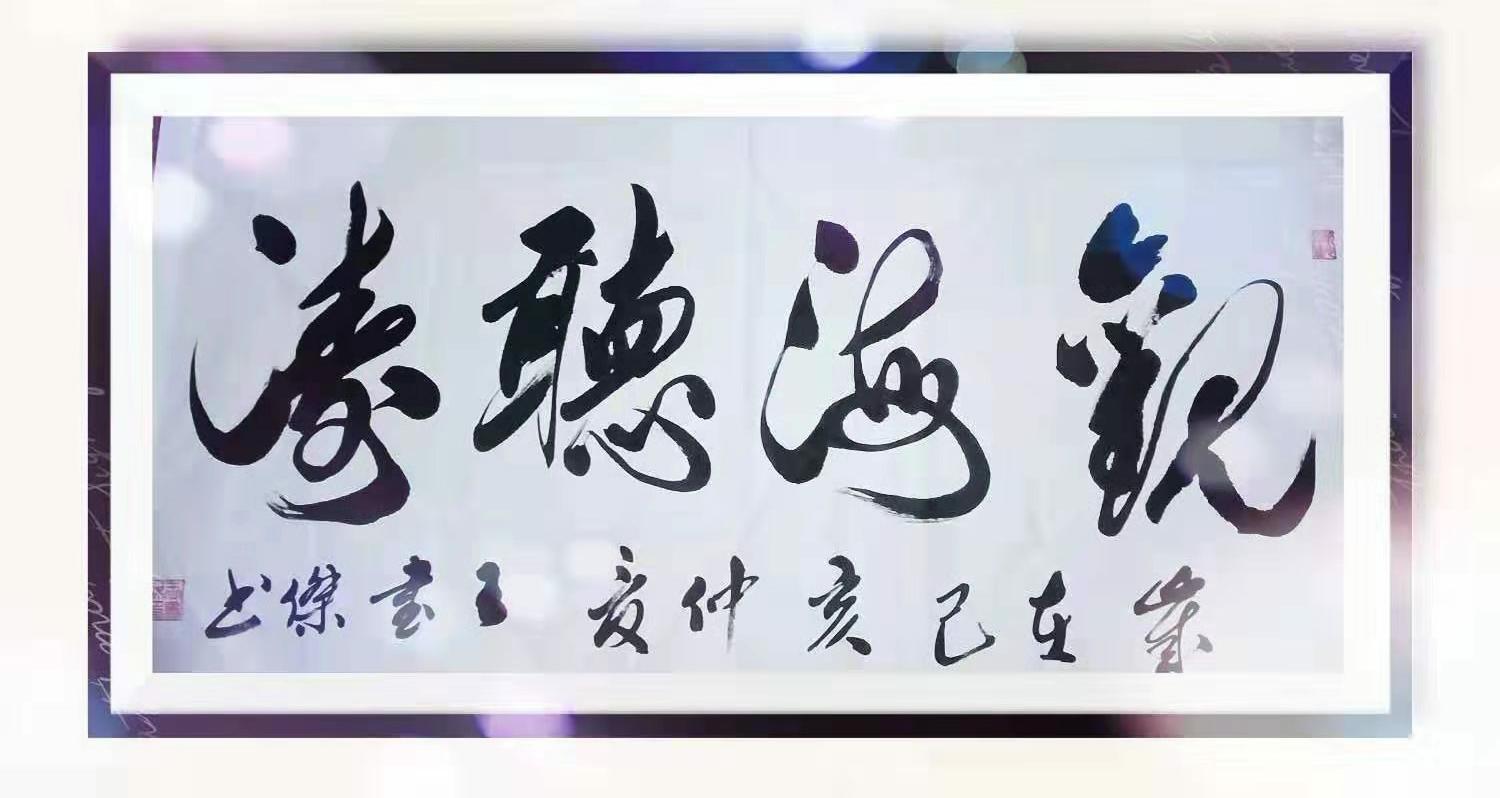 觀海聽濤
歲在己亥仲夏王書傑书